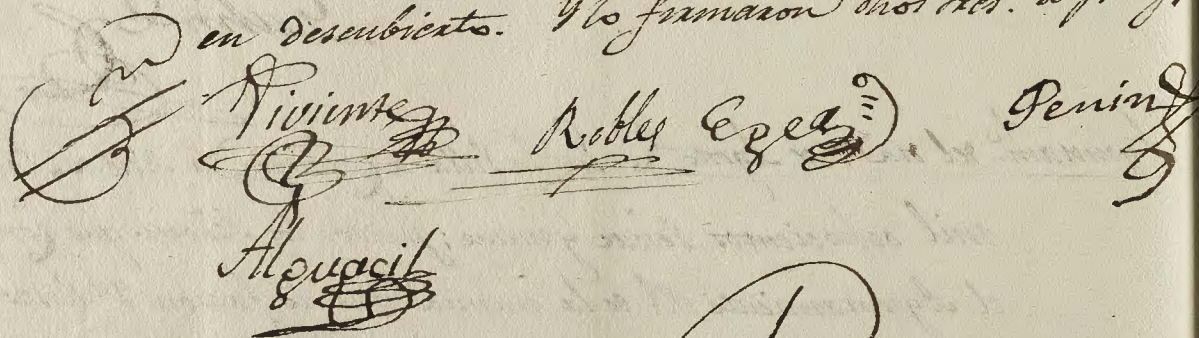 en descubierto. Y lo firmaron dhos sres.
Viviente Robles Egea Penin
Alguacil